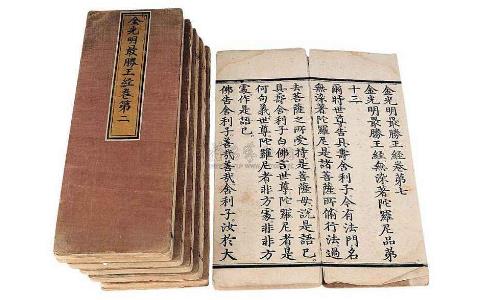 金光明最勝王經卷第二
金光明最勝王經卷第七
金光明最勝王經無染著陀羅尼品第
十三
爾時世尊告具壽舍利子今有法門名
無染著陀羅尼是諸菩薩所修行法過
去菩薩之所受持是菩薩母說是語已
具壽舍利子白佛言世尊陀羅尼者是
何句義世尊陀羅尼者非方處非非方
處作是語已
佛告舍利子善哉善哉舍利子汝於大